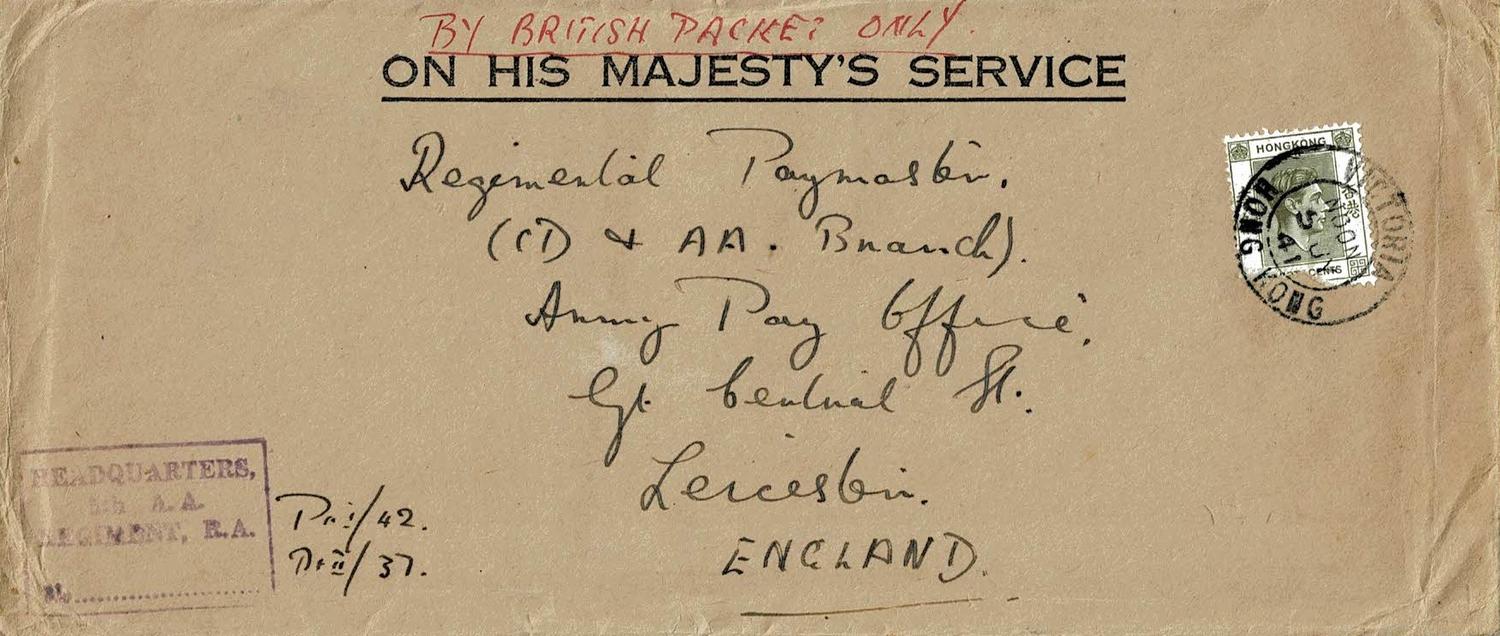 BY BRITISH PACKET ONLY.
ON HIS MAJESTY'S SERVICE
HONGKONG
香港
CENTS
VICTORIA
HONG KONG
NOON
5 JY
41
Regimental Paymaster.
(CD & AA. Branch).
Army Pay Office.
Gt. Central St.
Leicester.
ENGLAND.
HEADQUARTERS,
5th A.A.
REGIMENT, R.A.
No.
Pt I/42.
Pt II/37.